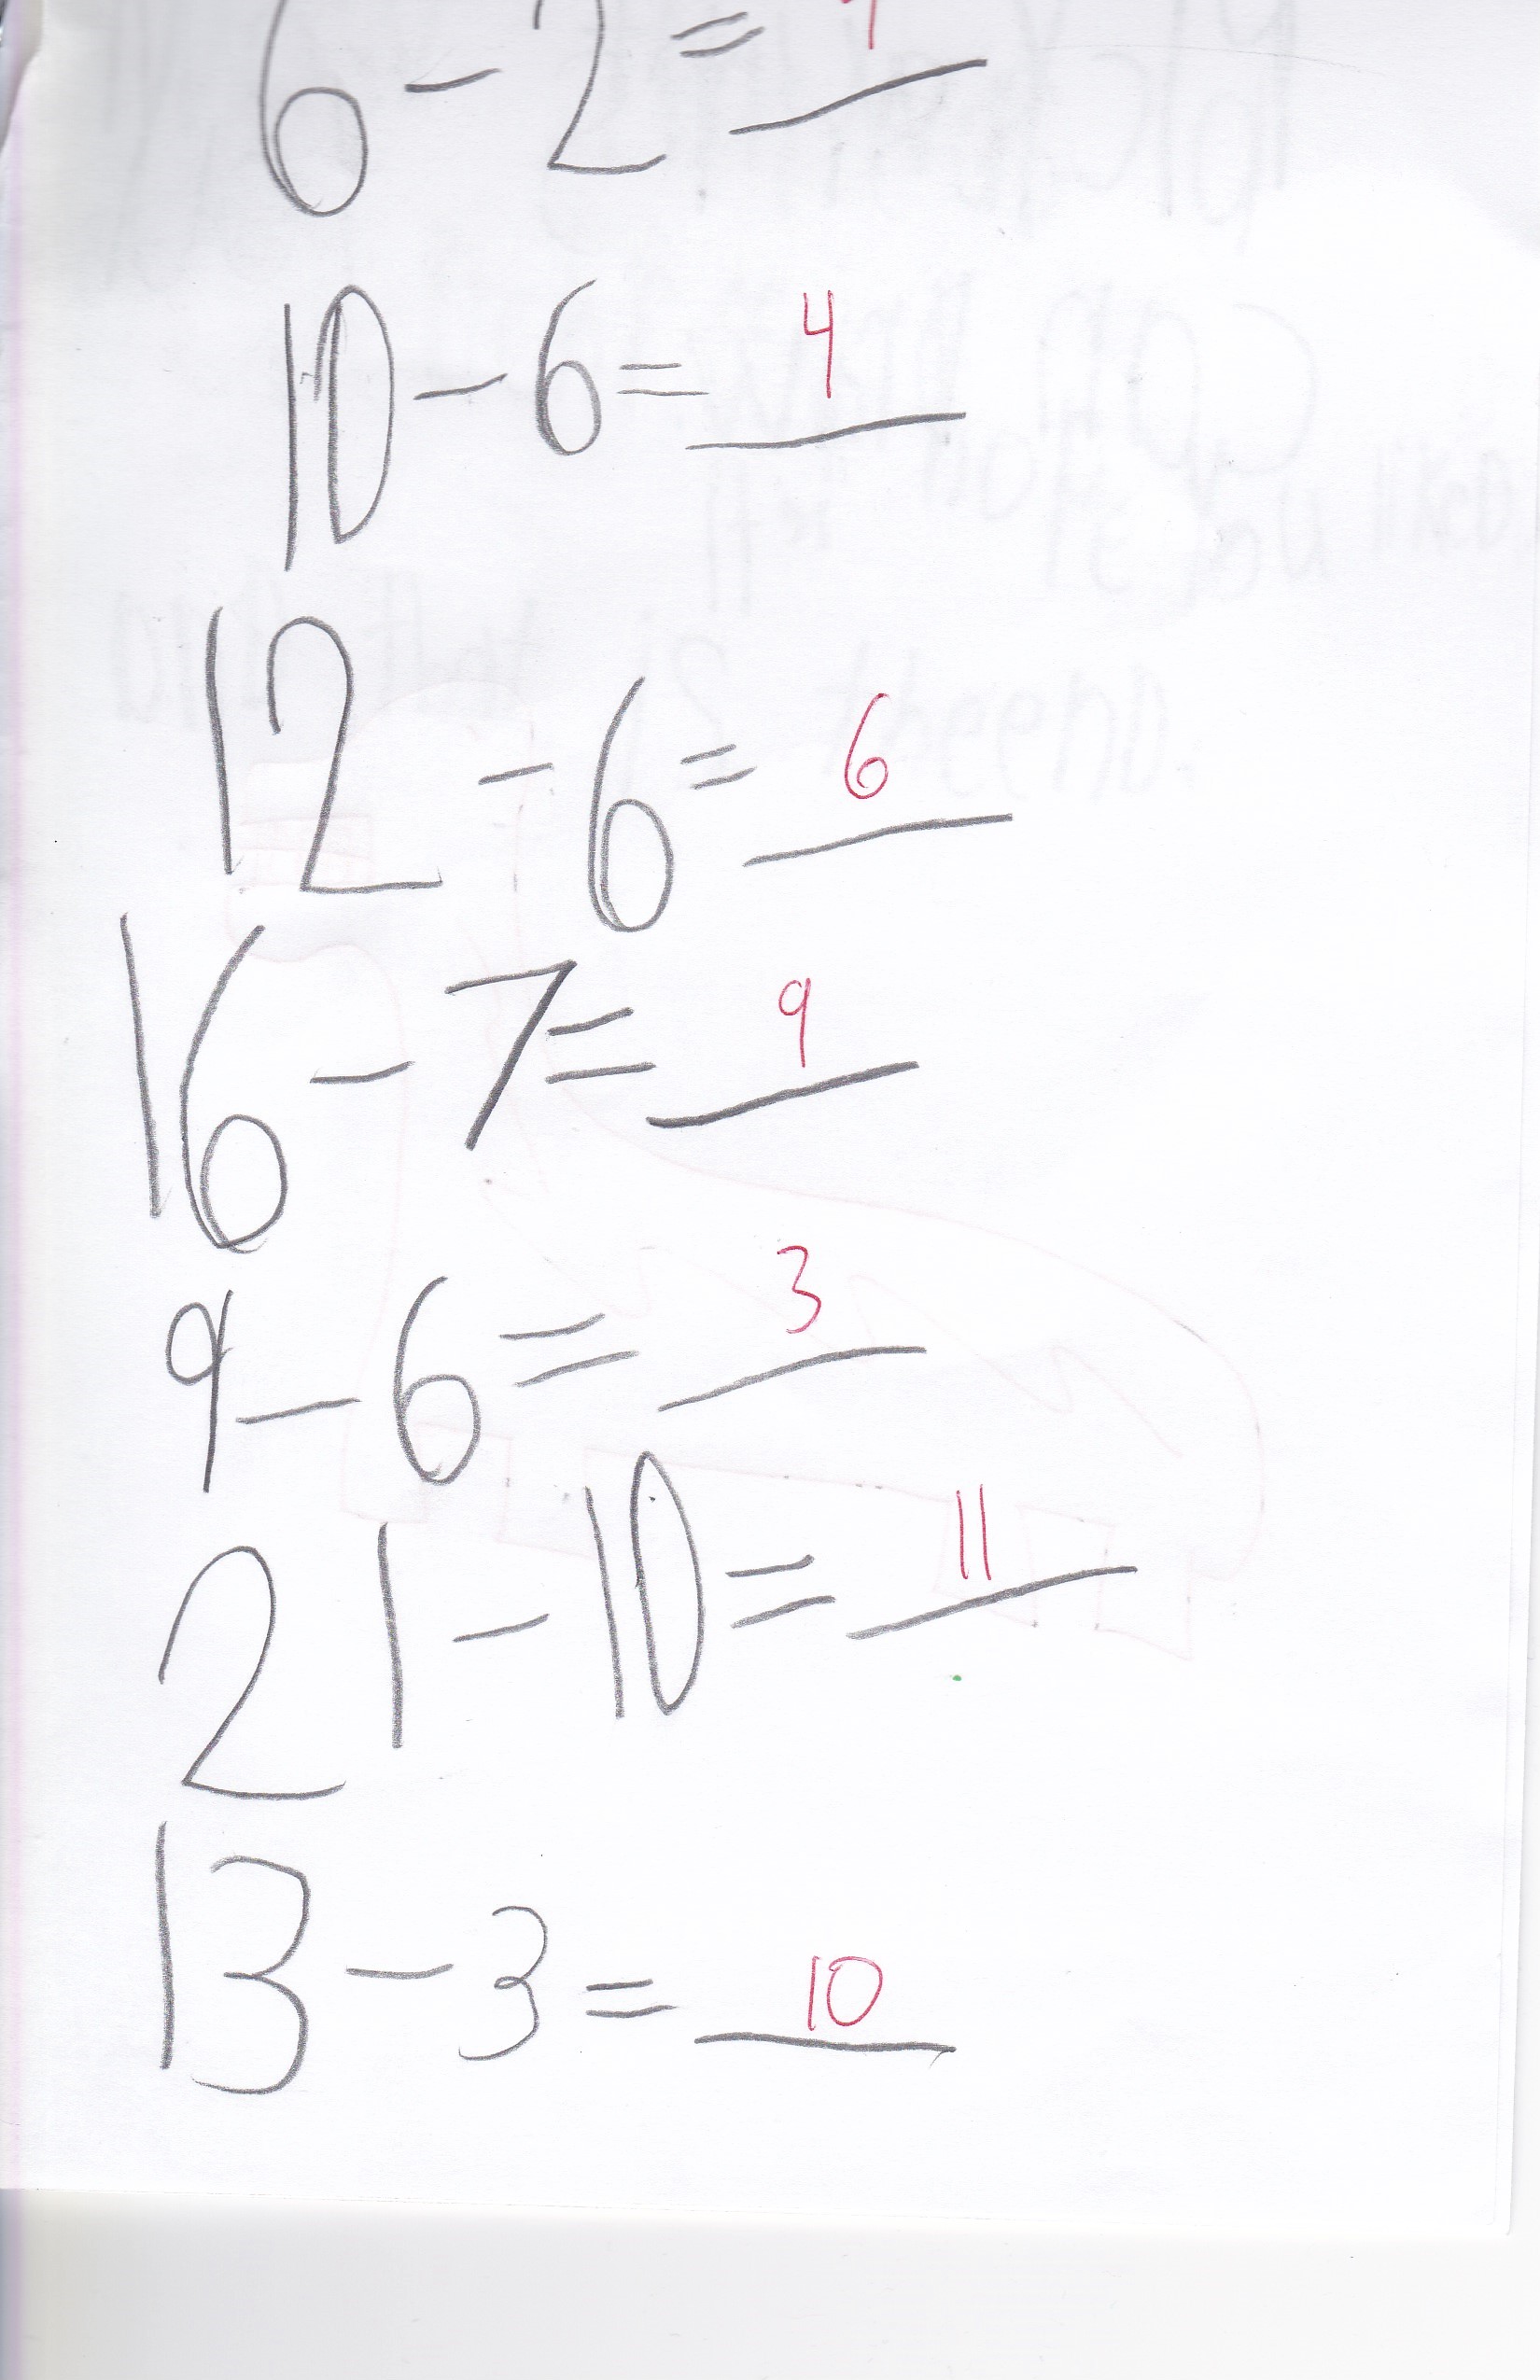 6 - 2 =
10 - 6 = 4
12 - 6 = 6
16 - 7 = 9
9 - 6 = 3
21 - 10 = 11
13 - 3 = 10